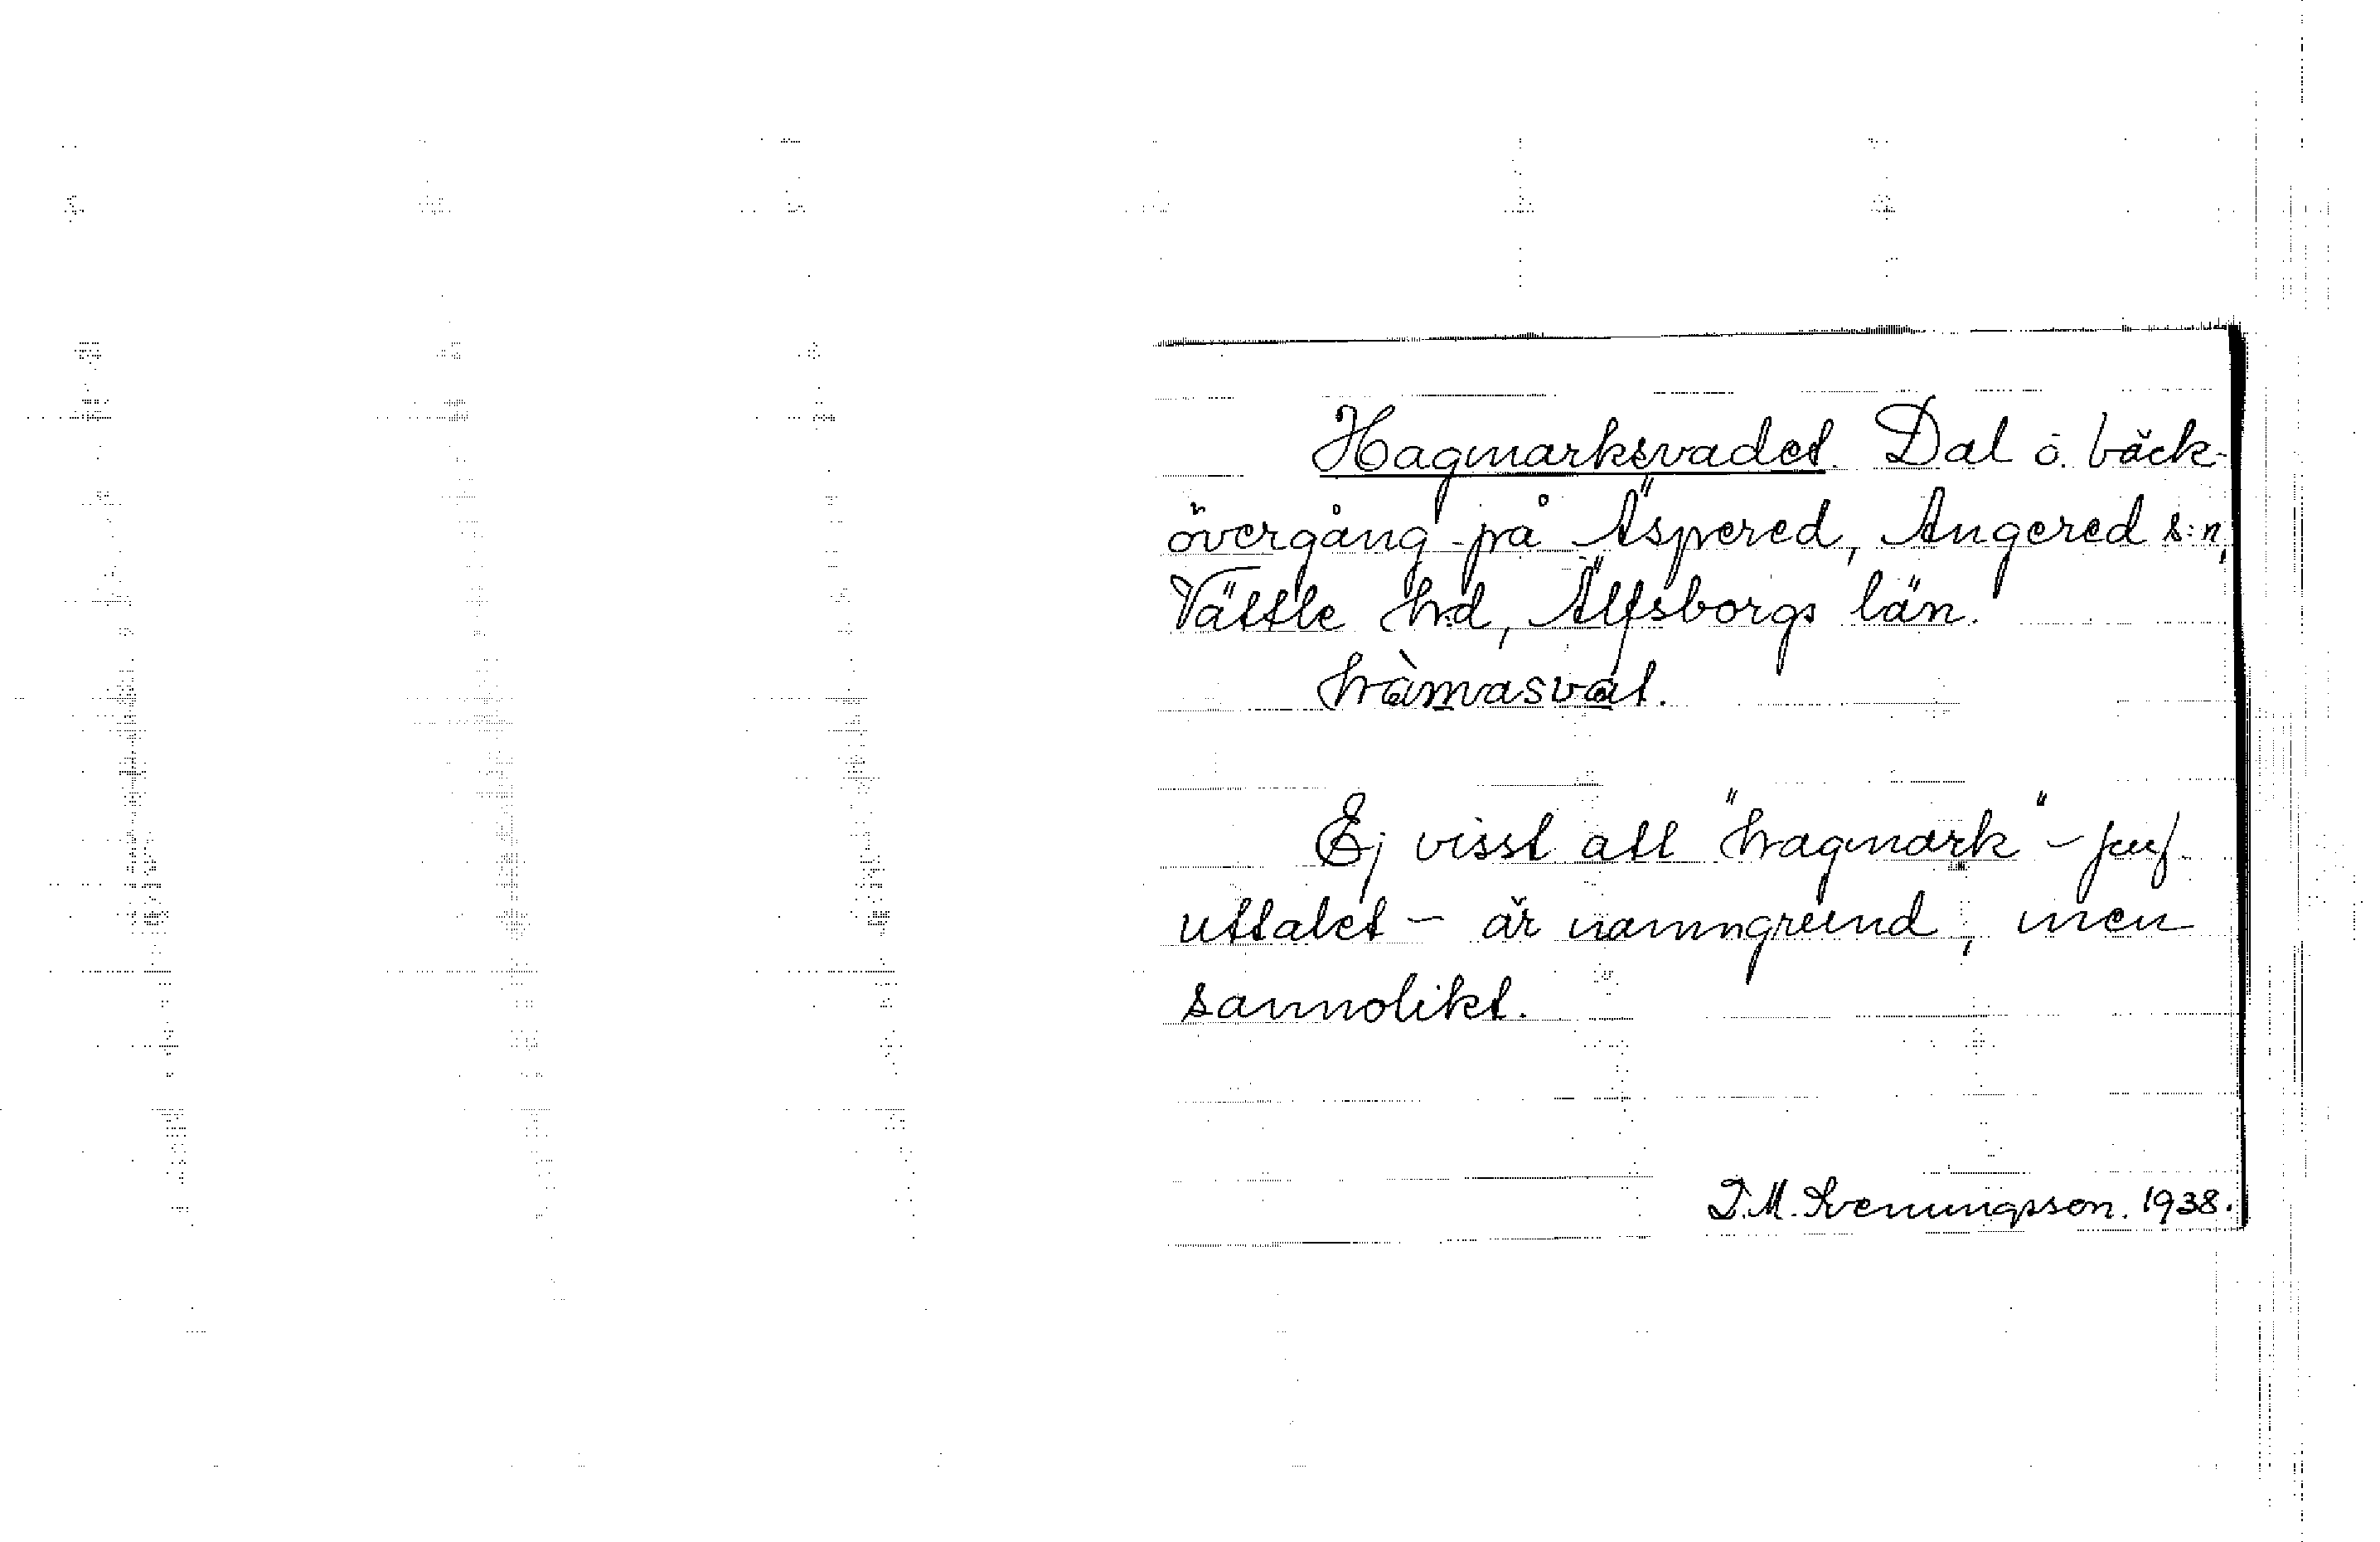 Hagmarksvadet. Dal o. bäck-
övergång på Äspered, Angered s:n,
Vättle hd, Älfsborgs län.
hàmasvat.
Ej visst att "hagmark" - jmf.
uttalet - är namngrund, men
sannolikt.
D.M. Svenungsson. 1938.